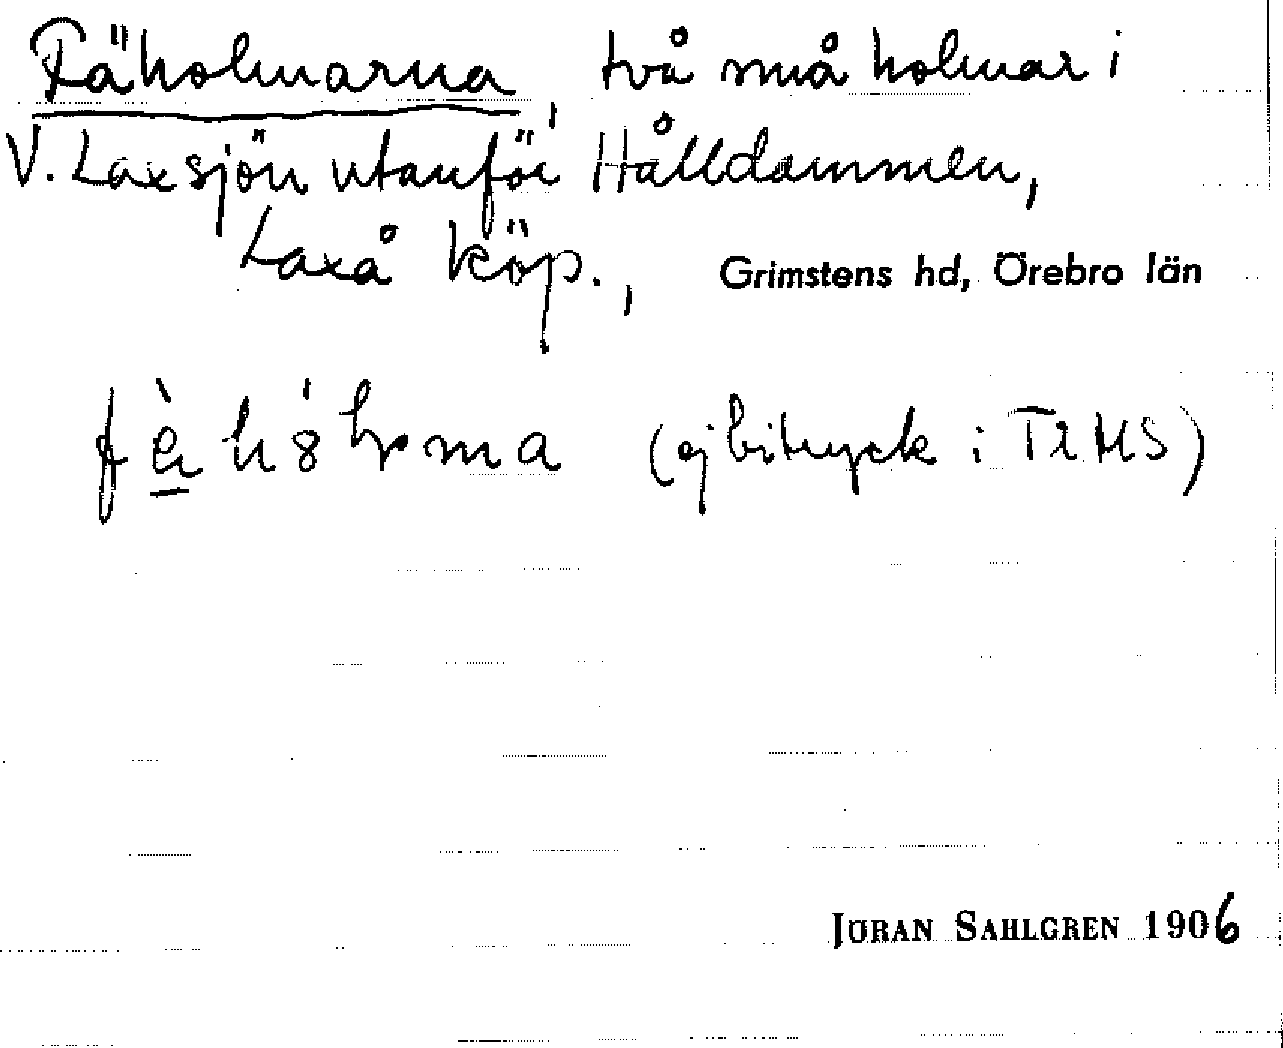 Fäholmarna, två små holmar i
V. Laxsjön utanför Hålldammen,
Laxå köp., Grimstens hd, Örebro län
(ej bitryck i
JÖRAN SAHLGREN 1906